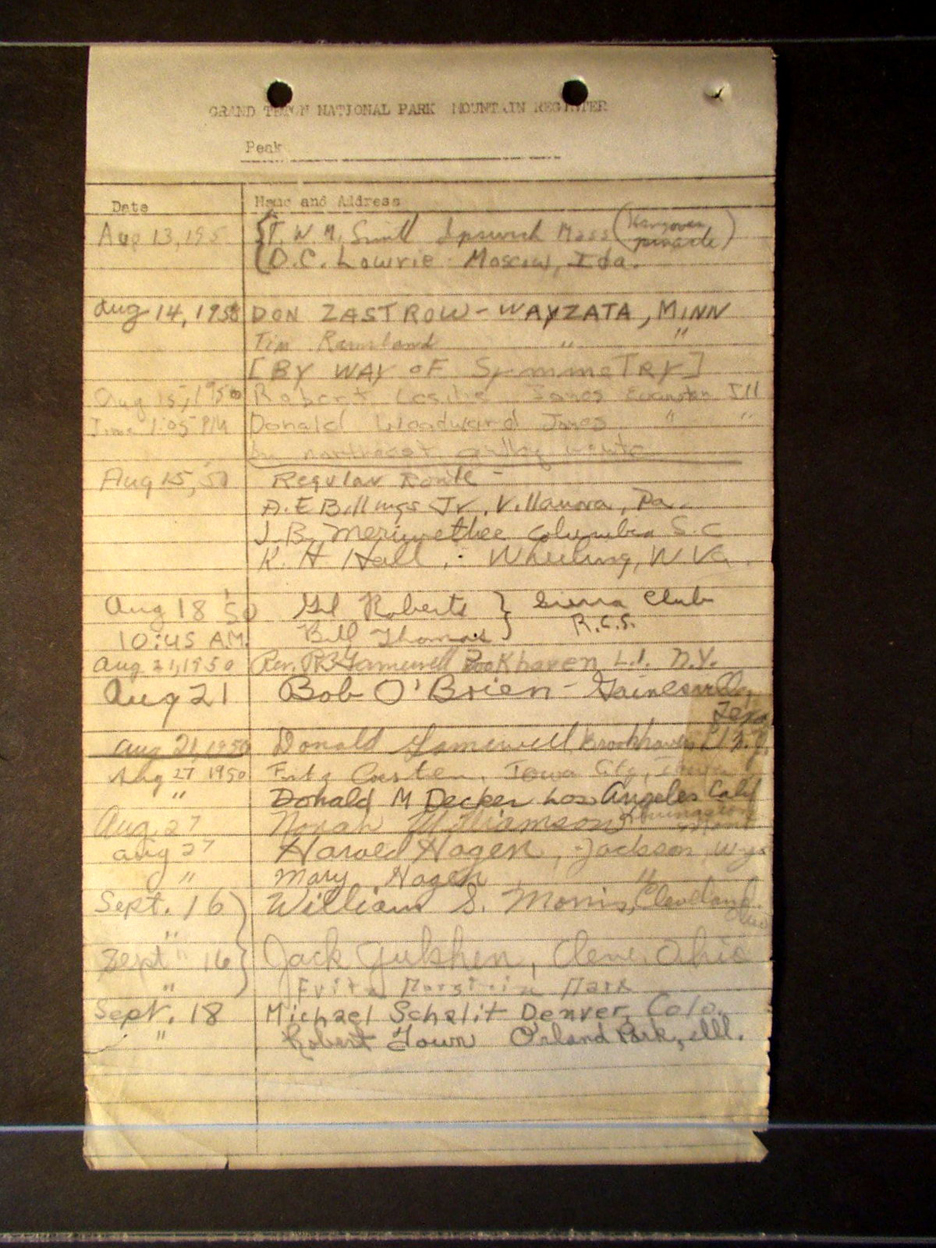 GRAND TETON NATIONAL PARK MOUNTAIN REGISTER
Peak
Date Name and Address
Aug 13, 195 T. W. M. Smith Ipswich Mass (Hangover pinnacle)
D.C. Lowrie Moscow, Ida.
Aug 14, 1950 DON ZASTROW - WAYZATA, MINN
Tim " "
[BY WAY OF SymmeTRY]
Aug 15, 1950 Robert Leslie Jones Evanston Ill
Time 1:05 PM Donald Woodward Jones " "
by northeast gully route
Aug 15, 50 Regular Route -
A. E Billings Jr. Villanova, Pa.
J. B. Meriwether Columbia S.C
K. H. Hall, - Wheeling, W. Va.
Aug 18 '50 Gil Roberts } Sierra Club
10:45 AM. Bill Thomas } R.C.S.
Aug 21, 1950 Rev. Gamewell Brookhaven, L.I. N.Y.
Aug 21 Bob O'Brien - Gainesville,
Texas
Aug 21, 1950 Donald Gamewell, Brookhaven, L.I. N.Y.
Aug 27 1950 Fritz Casten, Iowa City, Iowa
" Donald M Decker Los Angeles Calif
Aug. 27 Norah Williamson
Aug 27 Harold Hagen, Jackson, Wyo
" Mary Hagen "
Sept. 16 William S. Morris, Cleveland,
" Ohio
Sept 16 Jack , Cleve. Ohio
" Fritz
Sept. 18 Michael Schalit Denver, Colo.
" Robert Town Orland Park, Ill.